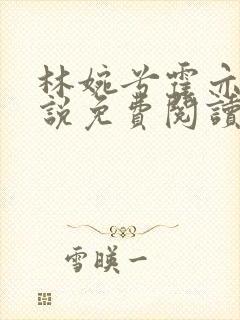 林婉兮霍亦
說免費閱讀
雪暎一